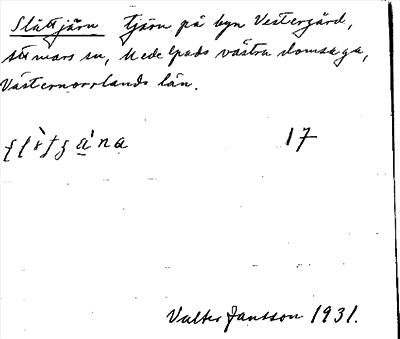 Slåttjärn tjärn på byn Vestergård,
Stt mars sn, Medelpads västra domsaga,
Västernorrlands län.
17
Valter Jansson 1931.